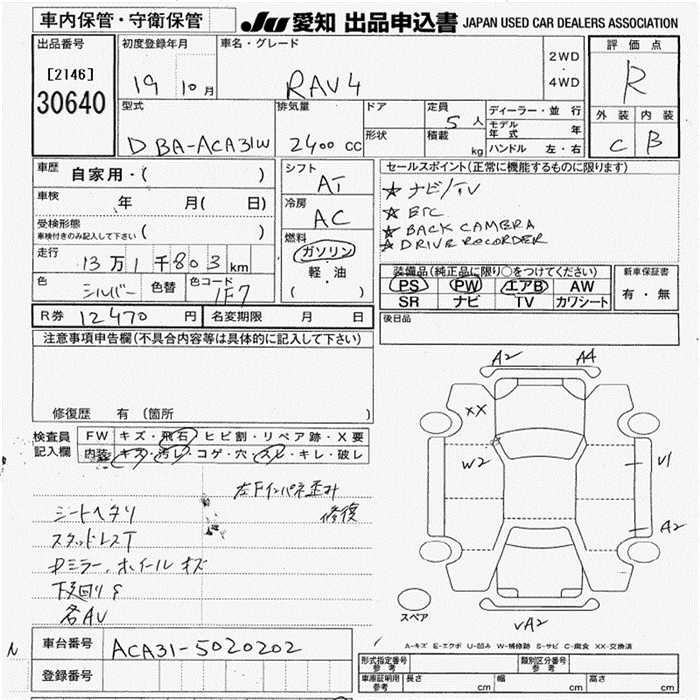 車内保管・守衛保管
JU 愛知 出品申込書 JAPAN USED CAR DEALERS ASSOCIATION
出品番号
[2146]
30640
初度登録年月
19 10月
車名・グレード
RAV4
2WD
・
4WD
評価点
R
外装 内装
C B
型式
DBA-ACA31W
排気量
2400 CC
ドア
形状
定員
5人
積載
kg
ディーラー・並行
モデル年式 年
ハンドル 左・右
車歴
自家用・( )
車検
年 月( 日)
受検形態
車検付きのみ記入して下さい ( )
走行
13万1千803km
色
シルバー
色替
色コード
1F7
シフト
AT
冷房
AC
燃料
ガソリン
軽・油
( )
セールスポイント(正常に機能するものに限ります)
☆ナビ/TV
☆ETC
☆BACK CAMERA
☆DRIVE RECORDER
装備品(純正品に限り○をつけてください)
PS PW エアB AW
SR ナビ TV カワシート
新車保証書
有・無
R券 12470円
名変期限 月 日
後日品
注意事項申告欄(不具合内容等は具体的に記入して下さい)
修復歴 有 (箇所 )
検査員記入欄
FW キズ・飛石・ヒビ割・リペア跡・X要
内装 キズ・汚レ・コゲ・穴・スレ・キレ・破レ
左Fインパネ歪み
修復
シートヘタリ
スタッドレスT
ドミラー、ホイールキズ
下廻りS
各AU
A2 A4
XX
W2
V1
A2
VA2
スペア
A-キズ E-エクボ U-凹み W-補修跡 S-サビ C-腐食 XX-交換済
車台番号 ACA31-5020202
登録番号
型式指定番号
参考
類別区分番号
参考
車庫証明用
参考
長さ cm
幅 cm
高さ cm